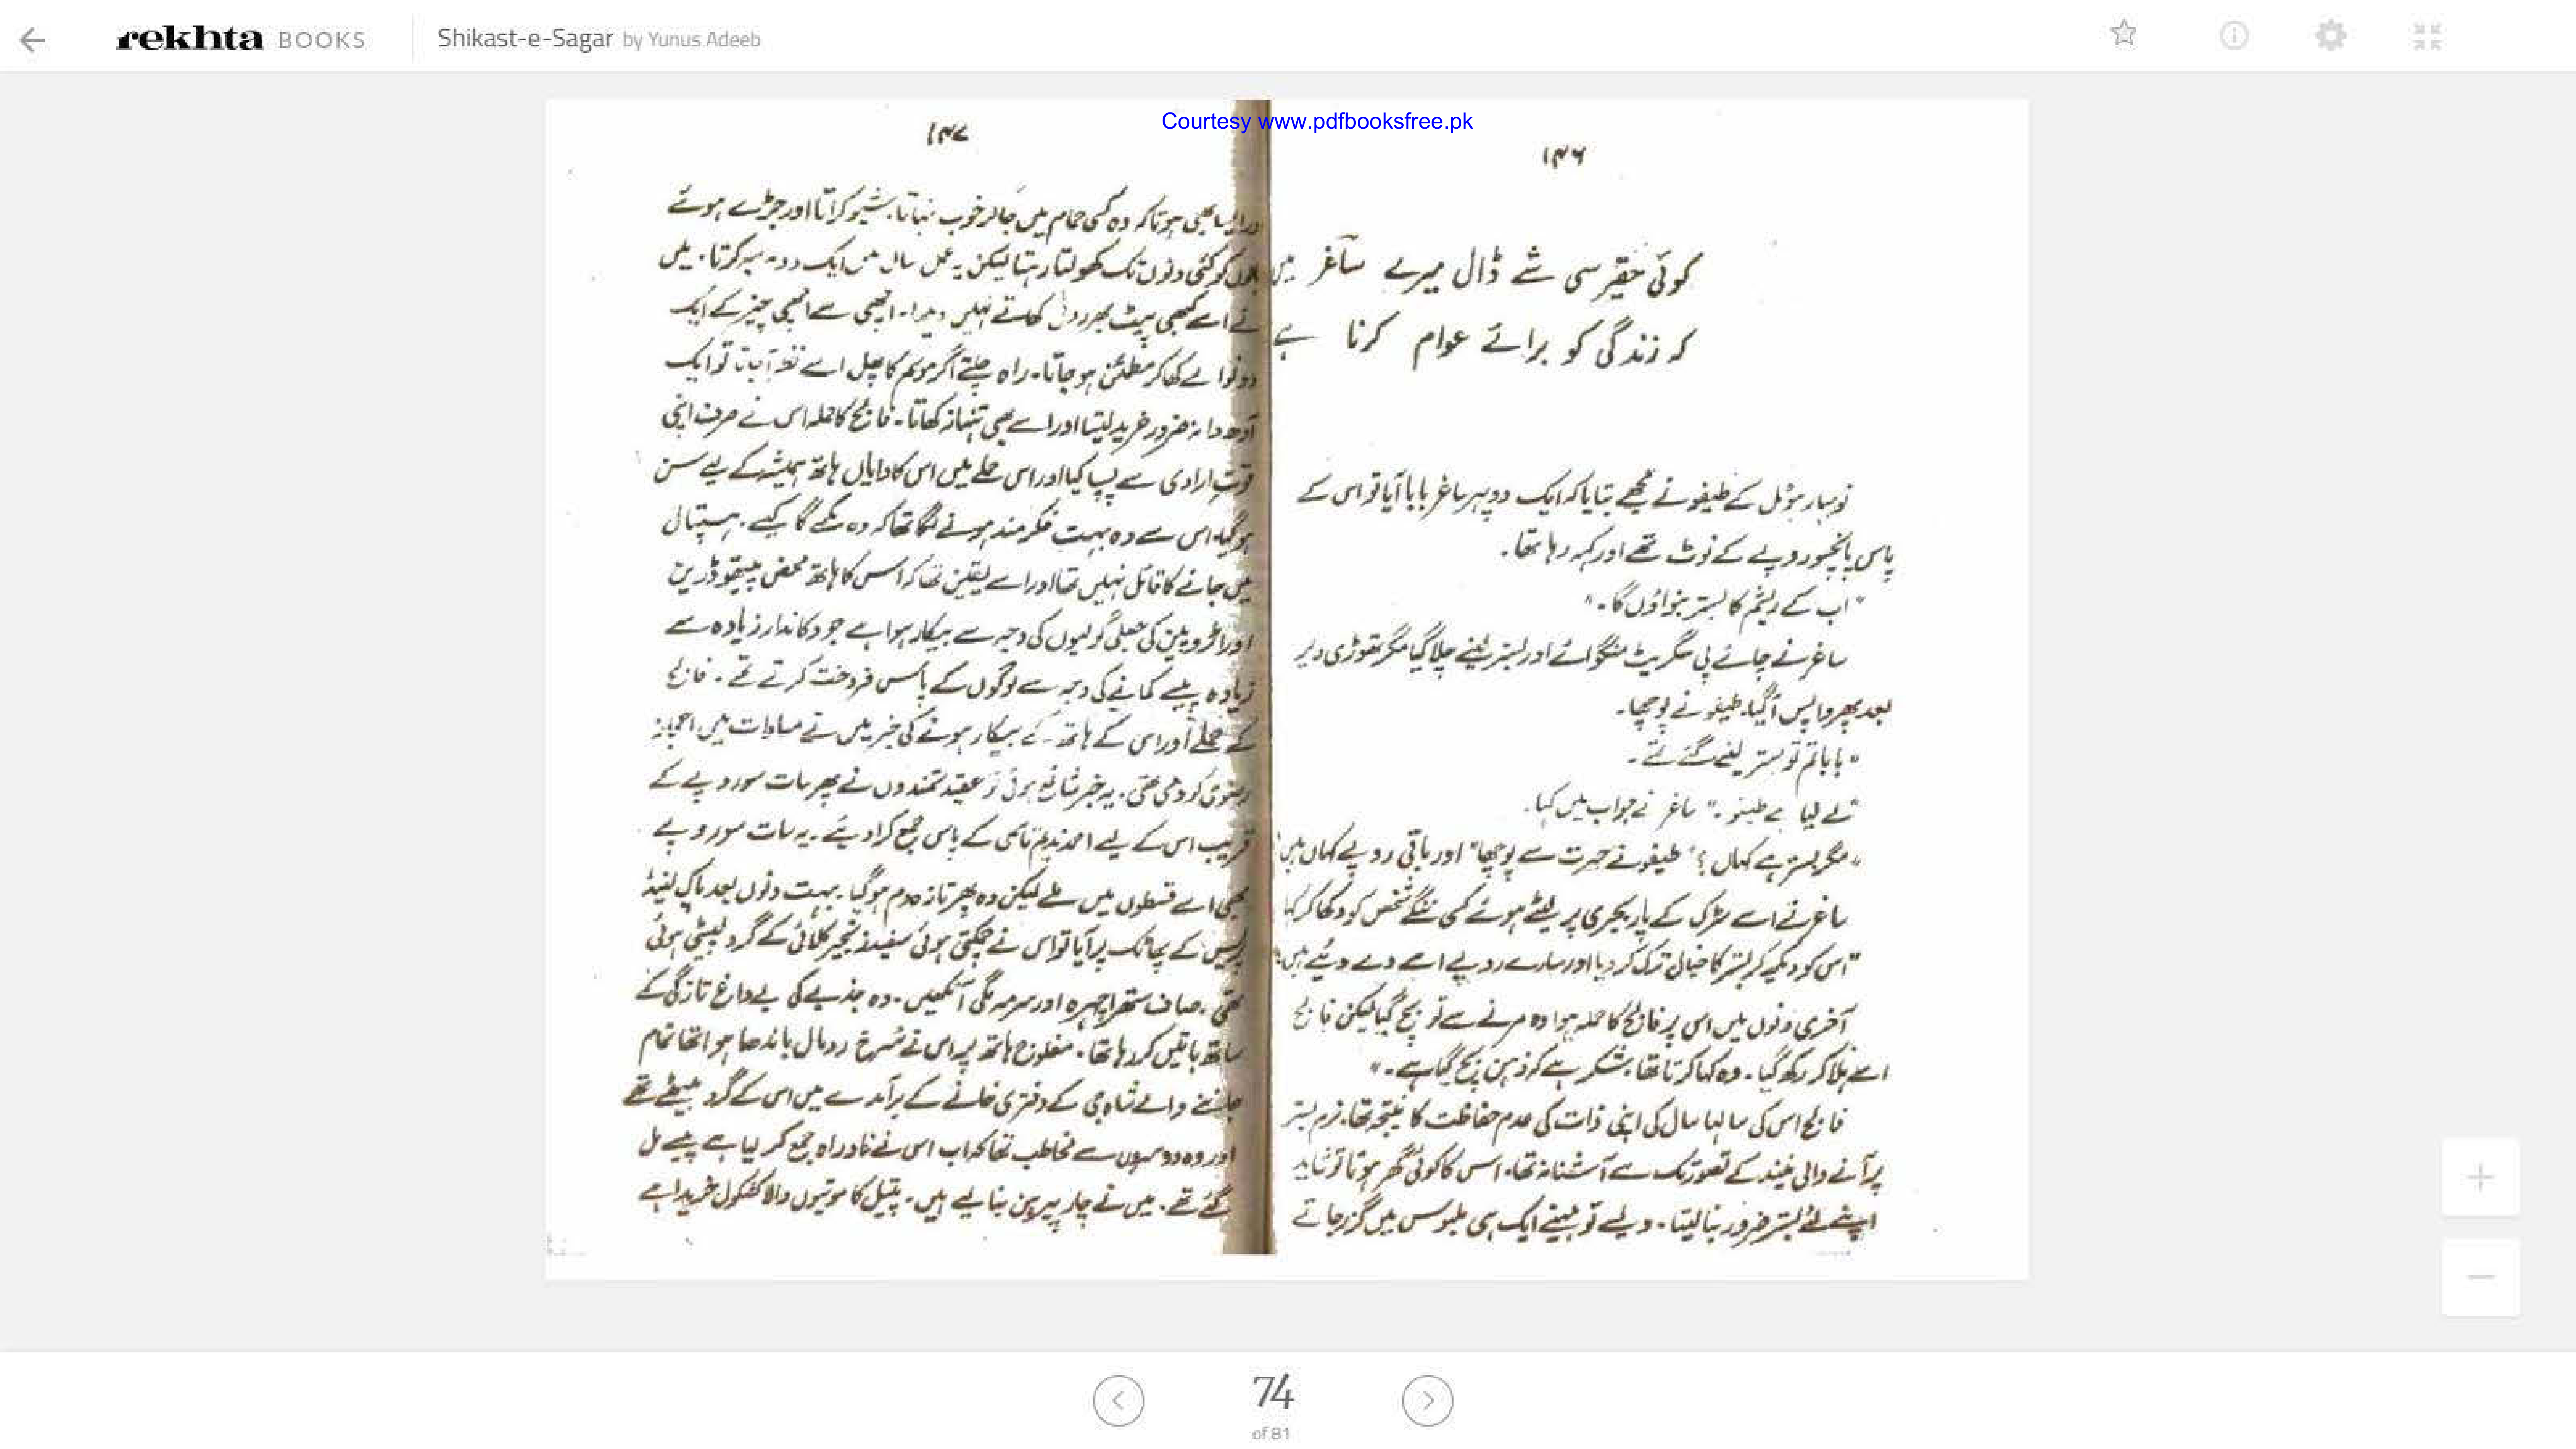 rekhta BOOKS
Shikast-e-Sagar by Yunus Adeeb
Courtesy www.pdfbooksfree.pk
۱۴۶
کوئی حقیر سی شے ڈال میرے ساغر میں
کہ زندگی کو برائے عوام کرنا ہے
نوبہار ہوٹل کے طیفو نے مجھے بتایا کہ ایک دوپہر ساغر بابا آیا تو اس کے
پاس پانچسو روپے کے نوٹ تھے اور کہہ رہا تھا۔
"اب کے ریشم کا بستر بنواؤں گا۔"
ساغر نے چائے پی سگریٹ منگوائے اور بستر لینے چلا گیا مگر تھوڑی دیر
بعد پھر واپس آگیا۔ طیفو نے پوچھا۔
"بابا تم تو بستر لینے گئے تھے۔
"لے لیا ہے طیفو۔" ساغر نے جواب میں کہا۔
"مگر بستر ہے کہاں؟" طیفو نے حیرت سے پوچھا "اور باقی روپے کہاں ہیں
ساغر نے اسے سڑک کے پار بجری پر لیٹے ہوئے کسی ننگے شخص کو دکھا کر کہا
"اس کو دیکھ کر بستر کا خیال ترک کر دیا اور سارے روپے اسے دے دیئے ہیں"
آخری دنوں میں اس پر فالج کا حملہ ہوا وہ مرنے سے تو بچ گیا لیکن فالج
اسے ہلا کر رکھ گیا۔ وہ کہا کرتا تھا، شکر ہے کہ ذہن بچ گیا ہے۔"
فالج اس کی سالہا سال کی اپنی ذات کی عدم حفاظت کا نتیجہ تھا، نرم بستر
پر آنے والی نیند کے تصور تک سے آشنا نہ تھا، اس کا کوئی گھر ہوتا تو شاید
اپنے لئے بستر ضرور بنا لیتا۔ ویسے تو مہینے ایک ہی ملبوس میں گزر جاتے
۱۴۷
اور ایسا بھی ہوتا کہ وہ کسی حمام میں جا کر خوب نہاتا۔ شیو کراتا اور جڑے ہوئے
بالوں کو کئی دنوں تک کھولتا رہتا لیکن یہ عمل سال میں ایک دو مرتبہ کرتا۔ میں
نے اسے کبھی پیٹ بھر روٹی کھاتے نہیں دیکھا۔ اچھی سے اچھی چیز کے ایک
دو نوالے کھا کر مطمئن ہو جاتا۔ راہ چلتے اگر موسم کا پھل اسے نظر آجاتا تو ایک
آدھ دانہ ضرور خرید لیتا اور اسے بھی تنہا نہ کھاتا۔ فالج کا حملہ اس نے صرف اپنی
قوت ارادی سے پسپا کیا اور اس حملے میں اس کا دایاں ہاتھ ہمیشہ کے لیے سن
ہو گیا۔ اس سے وہ بہت فکر مند ہونے لگا تھا کہ وہ لکھے گا کیسے۔ ہسپتال
میں جانے کا قائل نہیں تھا اور اسے یقین تھا کہ اس کا ہاتھ محض پیتھوڈرین
اور کی جعلی گولیوں کی وجہ سے بیکار ہوا ہے جو دکاندار زیادہ سے
زیادہ پیسے کمانے کی وجہ سے لوگوں کے پاس فروخت کرتے تھے۔ فالج
کے حملے اور اس کے ہاتھ کے بیکار ہونے کی خبر میں نے مساوات میں
رضوی کو دی تھی۔ یہ خبر شائع ہوئی تو عقیدتمندوں نے پھر سات سو روپے کے
قریب اس کے لیے احمد ندیم قاسمی کے پاس جمع کرا دیئے۔ یہ سات سو روپے
بھی اسے قسطوں میں ملے لیکن وہ پھر تازہ دم ہو گیا۔ بہت دنوں بعد پاک لینڈ
پریس کے پھاٹک پر آیا تو اس نے چمکتی ہوئی سفید زنجیر کلائی کے گرد لپیٹی ہوئی
تھی، صاف ستھرا چہرہ اور سرمہ لگی آنکھیں۔ وہ جذبے کی بے داغ تازگی کے
ساتھ باتیں کر رہا تھا۔ مفلوج ہاتھ پر اس نے سرخ رومال باندھا ہوا تھا تمام
جاننے والے شاہ جی کے دفتری خانے کے برآمدے میں اس کے گرد بیٹھے تھے
اور وہ دوسروں سے مخاطب تھا کہ اب اس نے زاد راہ جمع کر لیا ہے پیسے مل
گئے تھے۔ میں نے چار پیرہن بنا لیے ہیں۔ پیتل کا موتیوں والا کشکول خریدا ہے
74
of 81